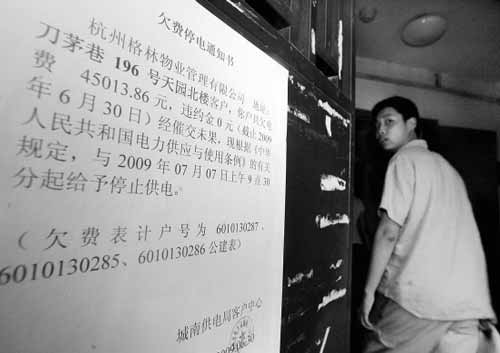 欠费停电通知书
杭州格林物业管理有限公司 地址：
刀茅巷 196 号天园北楼客户，客户共欠电
费 45013.86 元，违约金 0 元（截止 2009
年 6 月 30 日）经催交未果，现根据《中华
人民共和国电力供应与使用条例》的有关
规定，与 2009 年 07 月 07 日上午 9 点 30
分起给予停止供电。
（欠费表计户号为 6010130287、
6010130285、6010130286 公建表）
城南供电局客户中心